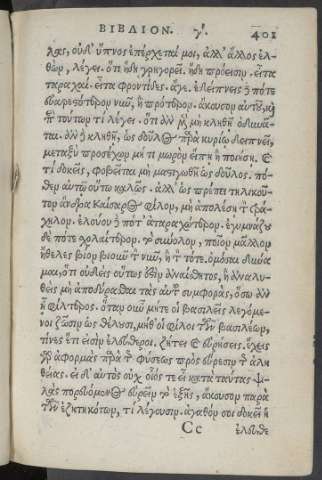 ΒΙΒΛΙΟΝ. γ΄. 401
λας, οὐδ' ὕπνος ἐπέρχεταί μοι, ἀλλ' ἄλλος ἐλ-
θὼν, λέγει. ὅτι ἤδη γρηγορεῖ. ἤδη πρόεισιν. εἶτα
ταραχαὶ. εἶτα φροντίδες. ἄγε. ἐδείπνεις ἢ πότε
εὐαρεστότερον νῦν, ἢ πρότερον. ἄκουσον αὐτοῦ, καὶ
περὶ τούτων τί λέγει. ὅτι ἂν μὲν μὴ κληθῇ ὀδυνᾶ-
ται. ἂν δὲ κληθῇ, ὡς δοῦλος παρὰ κυρίῳ δειπνεῖ,
μεταξὺ προσέχων μή τι μωρὸν εἴπῃ ἢ ποιήσῃ. καὶ
τί δοκεῖς, φοβεῖται μὴ μαστιγωθῇ ὡς δοῦλος. πό-
θεν αὐτῷ οὕτω καλῶς. ἀλλ' ὡς πρέπει τηλικοῦ-
τον ἄνδρα Καίσαρος φίλον, μὴ ἀπολέσῃ τὸν τρά-
χηλον. ἐλούου δὲ πότ' ἀταραχώτερον. ἐγυμνάζου
δὲ πότε σχολαίτερον. τὸ σύνολον, ποῖον μᾶλλον
ἤθελες βίον βιοῦν τὸν νῦν, ἢ τὸν τότε. ὀμόσαι δύνα
μαι, ὅτι οὐδεὶς οὕτως ἐστὶν ἀναίσθητος, ἢ ἀναλη-
θεὶς μὴ ἀποδύρασθαι τὰς αὑτοῦ συμφορὰς, ὅσῳ ἂν
ᾖ φίλτερος. ὅταν οὖν μήτε οἱ βασιλεῖς λεγόμε-
νοι ζῶσιν ὡς θέλουσι, μήθ' οἱ φίλοι τῶν βασιλέων,
τίνες ἔτι εἰσὶν ἐλεύθεροι. ζήτει καὶ εὑρήσεις. ἔχεις
γὰρ ἀφορμὰς παρὰ τῆς φύσεως πρὸς εὕρεσιν τῆς ἀλη
θείας. εἰ δ' αὐτὸς οὐχ οἷός τε εἶ κατὰ ταύτας ψι-
λὰς πορευόμενος εὑρεῖν τὸ ἑξῆς, ἄκουσον παρὰ
τῶν ἐζητηκότων, τί λέγουσιν. ἀγαθόν σοι δοκεῖ ἡ
Cc ἐλευθε